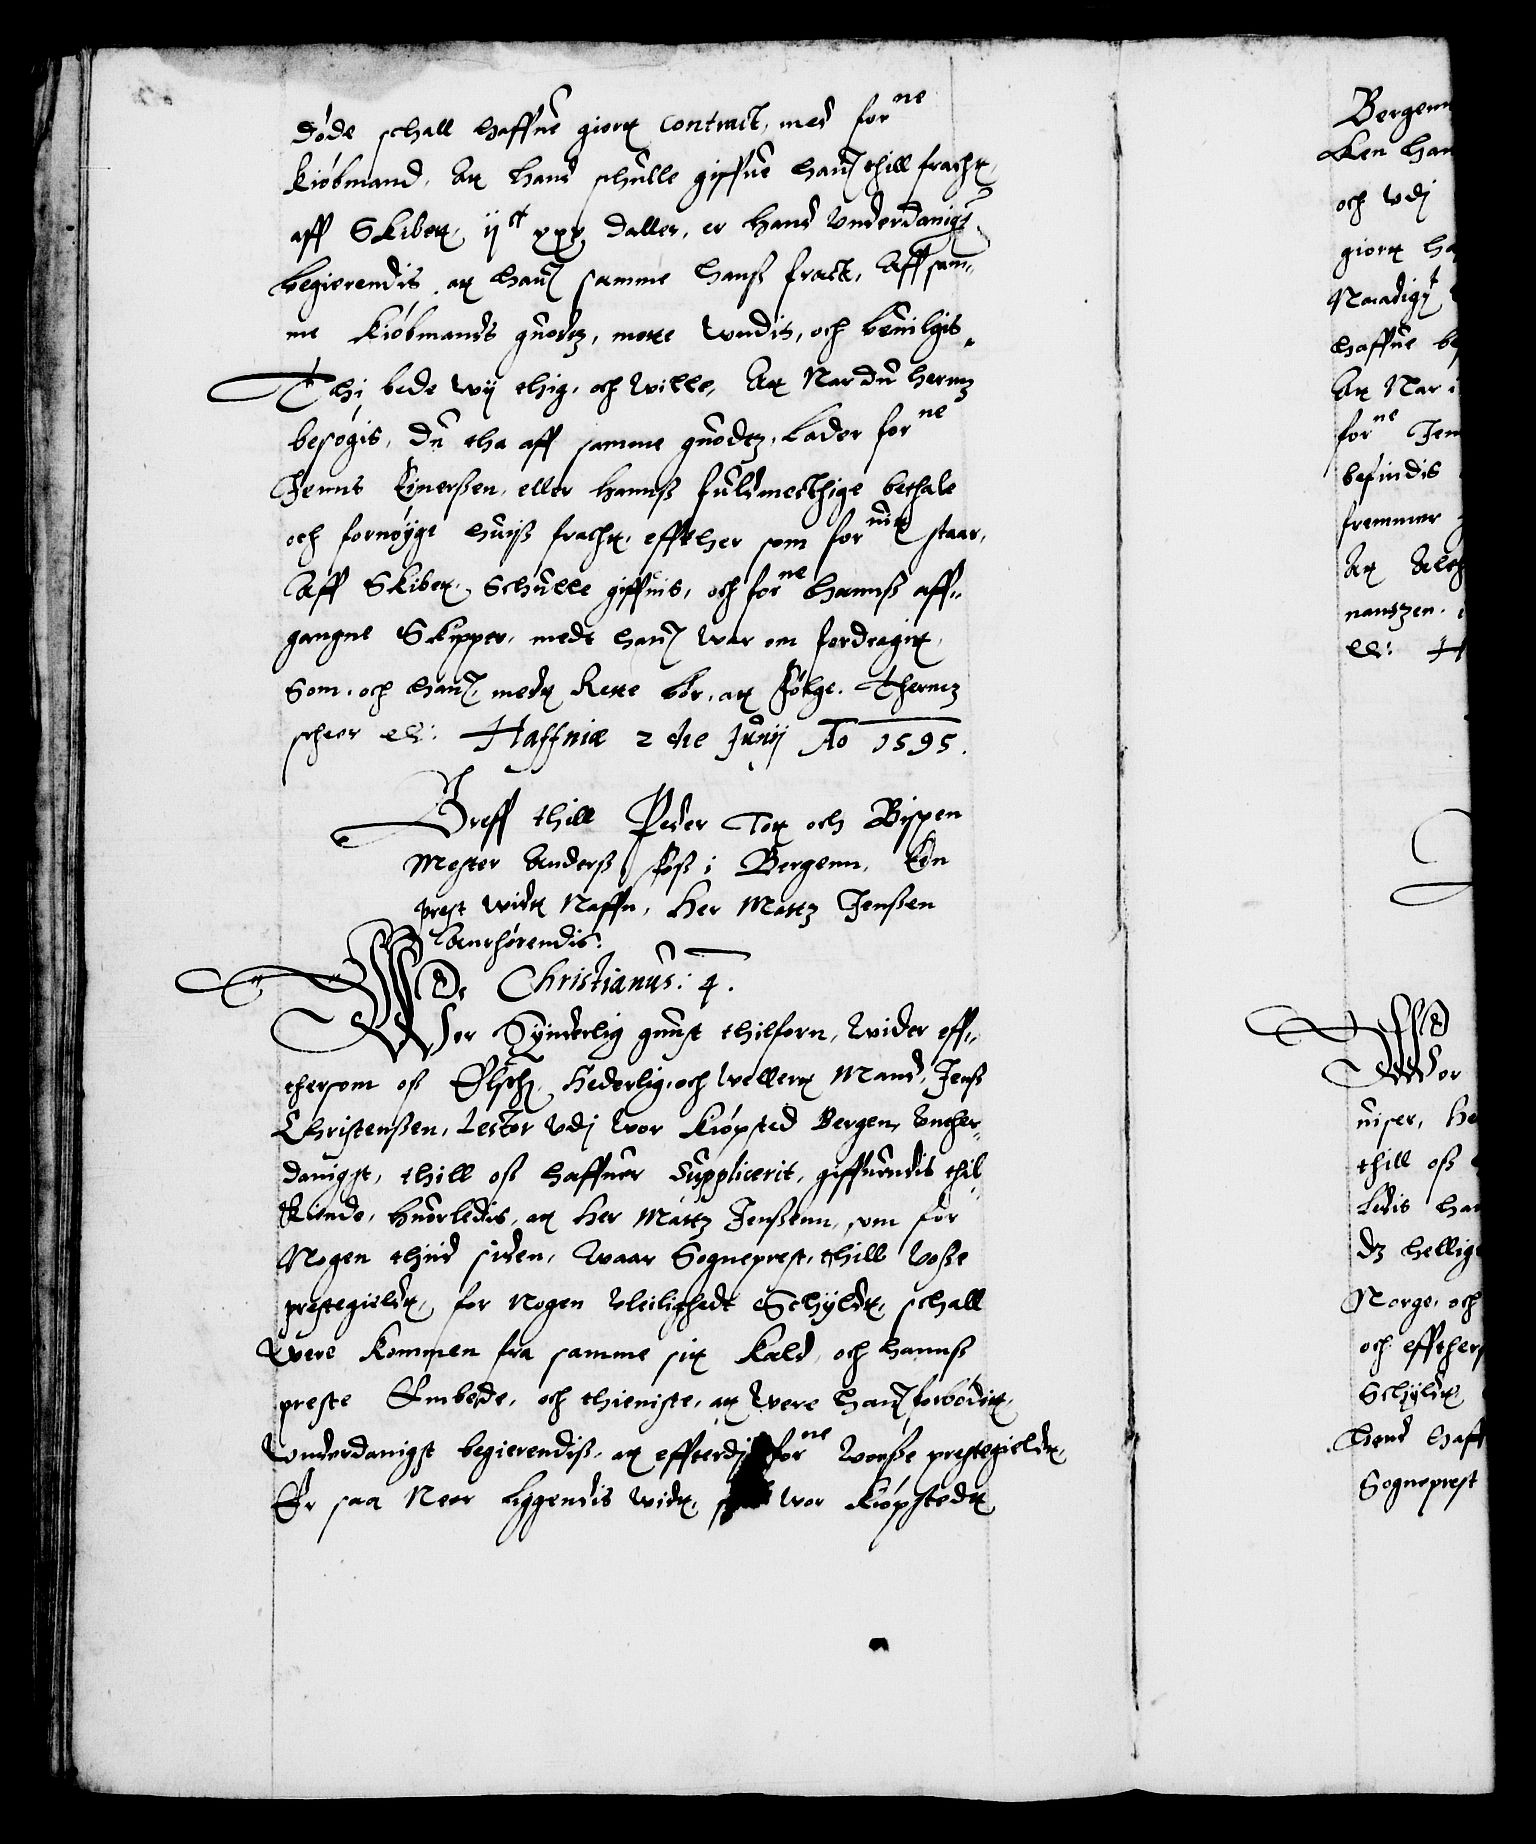 døde schall haffue giortt Contract, med forne
kiøbmand, Att hand schulle giffue hanb thill fracht,
aff Skibett, ijct xxx daller, er hand Underdanigst
begierendis, att hanb samme hanß fract, Aff sam-
me kiøbmands guodtz, motte undis, och beuilgis,
Thi bede wij thig, och wille, Att Nar du hermz
besøgis, du tha aff samme guodtz, Lader forne
Jenns Einerßen, eller hannß fuldmecthige bethale
och fornøyge huiß fracht, effther som foruitt staar,
Aff Skibett, Schulle giffuis, och forne hannß aff-
gangne Skipper, mede hanb war om fordragitt,
Som, och hanb, medt Rette bør, att følge. Thermz
scheer etc: Haffniæ 2 die Junij Ao 1595.
Breff thill Peder Tott och Bispen
Mester Anderß foß i Bergenn, En
prest widt Naffn, Her Mattz Jenßen
Anrhørendis.
Christianus: 4.
Wor Synderlig gunst thilforn, Wider eff-
thersom oß Elsche, Hederlig, och wellertt Mand, Jenß
Christenßen, Lector udj wor Kiøpsted Bergen, Unther-
danigst, thill oß haffuer Supplicerit, giffuendis thil
kiende, huorledis, att Her Mattz Jenßenn, som for
Nogen thiid siden, waar Sogneprest, thill Voße
prestegieldt, for Nogen Uleilighedt Schyldt, schall
were kommen fra samme sit kald, och hannß
preste Embede, och thieniste, att were hanb forbødit,
Underdanigst begierendiß, att effterdj forne Vonße prestegieldt,
Er saa Neer liggendis widt, wor kiøpstedt,
Bergenn
ken han
och udj
giortt ha
Naadigst
haffue be
Att Nar i
forne Jen
befindis
fremmer
Att Alth
nanszen.
etc: H
Wor
uiser, He
thill oß
ledis ha
dz hellig
Norge, och
och effthers
Schyldt,
hend haff
Sogneprest